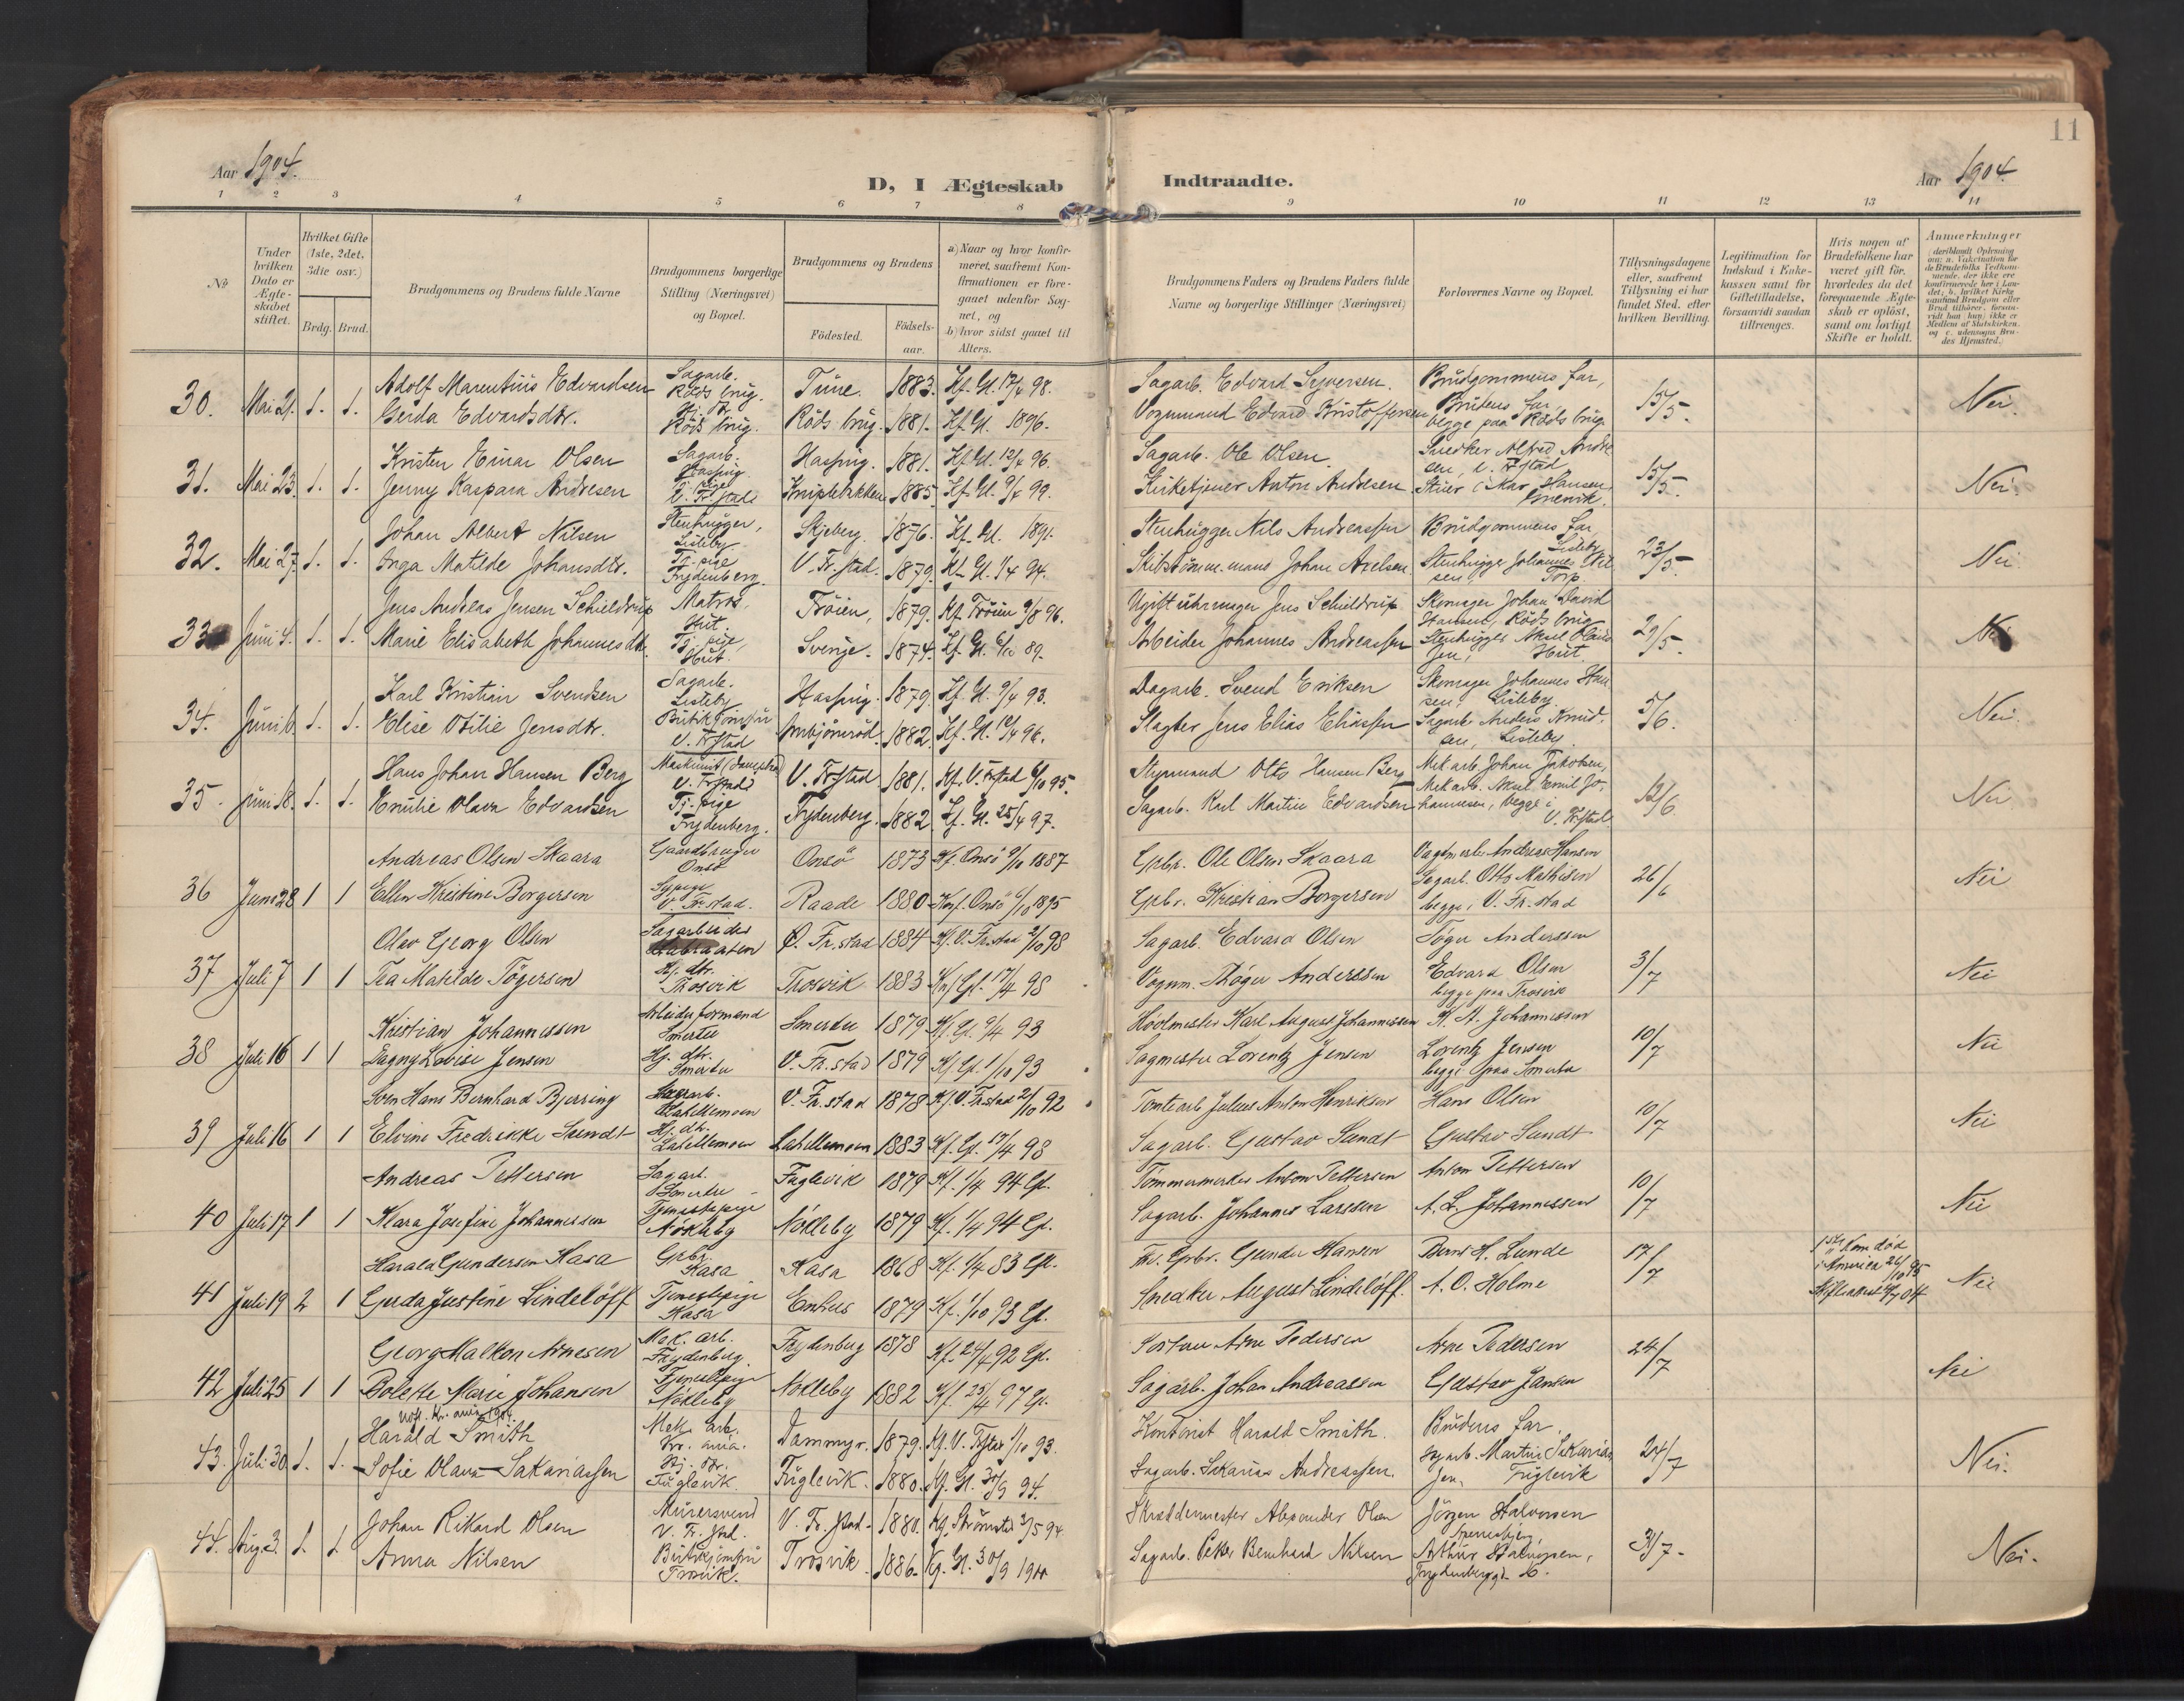 11
Aar 1904.
D, I Ægteskab Indtraadte.
Aar 1904
1 2 3 4 5 6 7 8 9 10 11 12 13 14
No
Under hvilken Dato er Ægteskabet stiftet.
Hvilket Gifte (1ste, 2det, 3die osv.)
Brdg. Brud.
Brudgommens og Brudens fulde Navne
Brudgommens borgerlige Stilling (Næringsvei) og Bopæl.
Brudgommens og Brudens
Födested.
Födsels-aar.
a) Naar og hvor konfirmeret, saafremt Konfirmationen er foregaaet udenfor Sognet, og
b) hvor sidst gaaet til Alters.
Brudgommens Faders og Brudens Faders fulde Navne og borgerlige Stillinger (Næringsvei)
Forlovernes Navne og Bopæl.
Tillysningsdagene eller, saafremt Tillysning ei har fundet Sted, efter hvilken Bevilling.
Legitimation for Indskud i Enkekassen samt for Giftetilladelse, forsaavidt saadan tiltrænges.
Hvis nogen af Brudefolkene har været gift för, hvorledes da det foregaaende Ægteskab er oplöst, samt om lovligt Skifte er holdt.
Anmerkninger
30. Mai 21. 1. 1.
Adolf Marentius Edvardsen Sagarb. Röds brug. Tune. 1883. Kf. Gl. 17/4 98. Sagarb. Edvard Syversen. Brudgommens far,
Gerda Edvardsdtr. Hj. dtr. Röds brug. Röds brug. 1881. Kf. Gl. 1896. Vognmand Edvard Kristoffersen Brudens far, begge paa Röds brug. 15/5. Nei.
31. Mai 23. 1. 1.
Kristen Einar Olsen Sagarb. Hasping. Hasping. 1881. Kf. Gl. 12/4 96. Sagarb. Ole Olsen. Snedker Alfred Andresen, V. Frstad
Jenny Kaspara Andresen Tj. pige V. Fr.stad Kniplebakken 1885. Kf. Gl. 9/4 99. Kirketjener Anton Andresen 15/5. Nei.
32. Mai 27. 1. 1.
Johan Albert Nilsen Stenhugger, Lisleby Skjeberg. 1876. Kf. Gl. 1891. Stenhugger Nils Andreassen Brudgommens far Lisleby
Inga Matilde Johansdtr. Tj. pige Frydenberg. V. Fr.stad. 1879. Kf. Gl. 1/4 94. Skibstömm. mand Johan Axelsen Stenhugger Johannes Nilsen, Torp. 23/5. Nei
33 Juni 4. 1. 1.
Jens Andreas Jensen Schieldrup Matros, Hut. Tröien, 1879. Kf. Tröien 9/8 96. Ugift uhrmager Jens Schieldrup Skomager Johan David Hansen, Röds brug
Marie Elisabeth Johannesdtr. Tj. pige, Hut. Sverige. 1874. Kf. Gl. 6/10 89. Arbeider Johannes Andreassen Stenhugger Aksel Olaussen, Hut 29/5. Nei
34. Juni 6. 1. 1.
Karl Kristian Svendsen Sagarb. Lisleby Hasping. 1879. Kf. Gl. 9/4 93. Dagarb. Svend Eriksen Skomager Johannes Hansen, Lisleby
Elise Otilie Jensdtr. Butikjomfru V. Frstad Ambjörnröd. 1882. Kf. Gl. 12/4 96. Slagter Jens Elias Eliassen Sagarb. Anders Knudsen, Lisleby. 5/6. Nei.
35. Juni 18. 1. 1.
Hans Johan Hansen Berg Maskinist V. Frstad V. Frstad 1881. Kf. V. Frstad 6/10 95. Styrmand Otto Hansen Berg Mek. arb. Johan Jakobsen,
Emilie Olava Edvardsen Tj. pige Frydenberg. Frydenberg. 1882 Kf. Gl. 25/4 97. Sagarb. Karl Martin Edvardsen Mek. arb. Aksel Emil Johannesen, begge i V. Frstad 12/6. Nei.
36 Juni 28 1 1
Andreas Olsen Skaara Gaardbruger Onsö Onsö 1873 Kf. Onsö 9/10 1887 Grbr. Ole Olsen Skaara Andreas Hansen
Ellen Kristine Borgersen Sypige V. Fr.stad. Raade 1880 Konf. Onsö 6/10 1895 Grbr. Kristian Borgersen Sagarb. Otto Mathisen begge, V. Fr.stad 26/6 Nei
37 Juli 7 1 1
Olav Georg Olsen Sagarbeider Ö. Fr.stad 1884 Kf. V. Fr.stad 2/10 98 Sagarb. Edvard Olsen Töger Anderssen
Tea Matilde Tögersen Hj. dtr. Trosvik Trosvik 1883 Konf Gl. 17/4 98 Vognm. Töger Anderssen Edvard Olsen begge paa Trosvik 3/7 Nei
38 Juli 16 1 1
Kristian Johannessen Arbeiderformand Smertu Smertu 1879 Kf. Gl. 9/4 93 Karl August Johannessen K. A. Johannessen
Dagny Lovise Jensen Hj. dtr. Smertu V. Fr.stad 1879 Kf Gl. 1/10 93 Sagmester Lorentz Jensen Lorentz Jensen begge paa Smertu 10/7 Nei
39 Juli 16 1 1
Sven Hans Bernhard Bjerring Sagarb. Labellemoen V. Fr.stad 1878 Kf. V. Fr.stad 2/10 92 Tomtearb Julius Anton Henriksen Hans Olsen
Elvine Fredrikke Sundt Hj. dtr. Labellemoen Labellemoen 1883 Kf. Gl. 17/4 98 Sagarb. Gustav Sundt Gustav Sundt 10/7 Nei
40 Juli 17 1 1
Andreas Pettersen Sagarb. Smertu Fuglevik 1879 Kf. 1/4 94 Gl. Tömmermerker Anton Pettersen Anton Pettersen
Klara Josefine Johannessen Tjenestepige Nökleby Nökleby 1879 Kf. 1/4 94 Gl. Sagarb. Johannes Larssen A. L. Johannessen 10/7 Nei
41 Juli 19 2 1
Harald Gundersen Kasa Grbr. Kasa Kasa 1868 Kf. 1/4 83 Gl. Fhv. Grbr. Gunder Hansen Bernt H. Lunde
Gerda Justine Lindelöff Tjenestepige Kasa Enhus 1879 Kf. 1/10 93 Gl. Snedker August Lindelöff. A. O. Holme 17/7 1ste Kone död i America 26/10 95 Nei
42 Juli 25 1 1
Georg Malkon Arnesen Mek. arb. Frydenberg Frydenberg 1878 Kf. 24/4 92 Gl. Arne Pedersen Arne Pedersen
Bolette Marie Johansen Tjenestepige Nökleby Nökleby 1882 Kf. 25/4 97 Gl. Sagarb. Johan Andreassen Gustav Jansen 24/7 Nei
43. Juli 30. 1. 1.
Harald Smith Mek. arb. Kr. ania. Dammyr. 1879. Kf. V. Frstad 1/10 93. Kontorist Harald Smith. Brudens far.
Sofie Olava Sakariassen Hj. dtr. Fuglevik. Fuglevik. 1880. Kf. Gl. 30/9 94. Sagarb. Sakarias Andreassen. Sagarb. Martin Sakariassen, Fuglevik 24/7 Nei.
44. Aug. 3. 1. 1.
Johan Rikard Olsen Murersvend V. Fr. stad. V. Fr. stad. 1880. Kf. Strömstad 3/5 94. Skræddermester Alexander Olsen Jörgen Halvorsen
Anna Nilsen Butikjomfru Trosvik. Trosvik 1886. Kf. Gl. 30/9 1900 Sagarb. Peter Bernhard Nilsen Arthur Halvorsen, Frydenberggd. 16. 31/7. Nei.